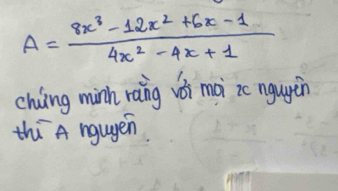 A = \frac{8x³ - 12x² + 6x - 1}{4x² - 4x + 1}
chứng minh rằng với mọi x nguyên
thì A nguyên.